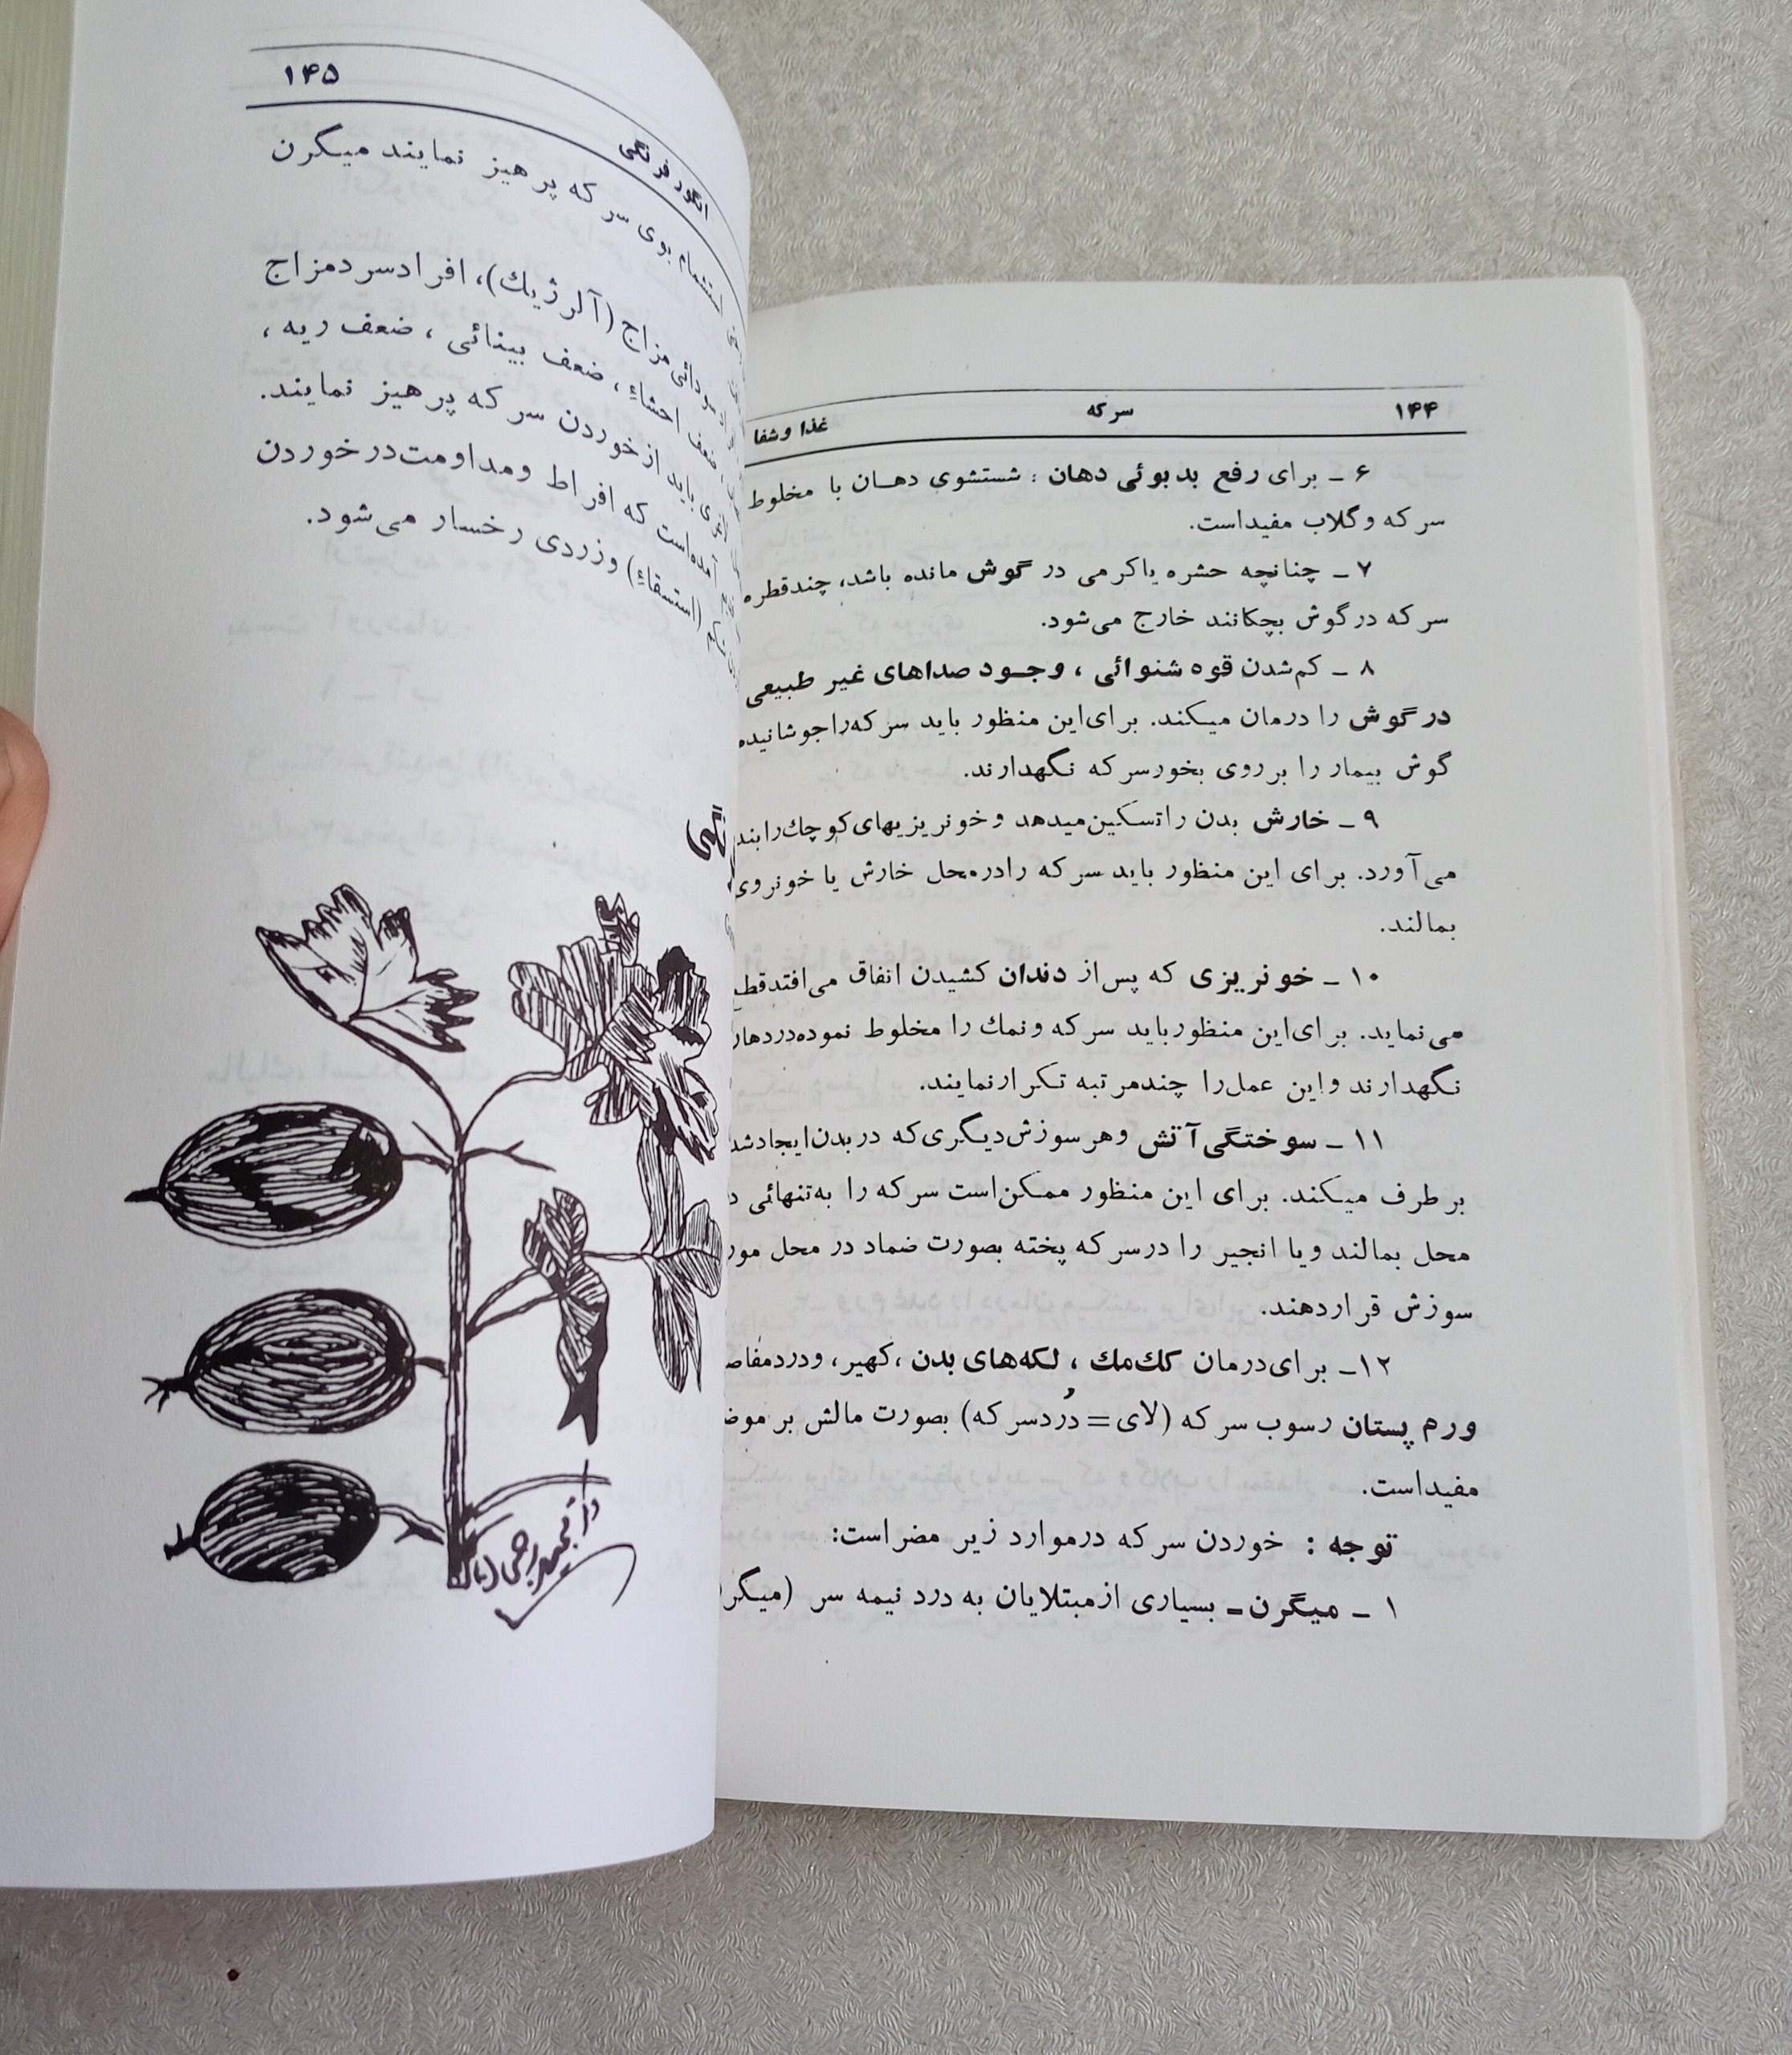 ۱۴۴ سرکه غذا و شفا
۶ ـ برای رفع بد بوئی دهان : شستشوی دهان با مخلوط
سرکه و گلاب مفیداست.
۷ ـ چنانچه حشره یاکرمی در گوش مانده باشد، چندقطره
سرکه درگوش بچکانند خارج می‌شود.
۸ ـ کم‌شدن قوه شنوائی ، وجود صداهای غیر طبیعی
در گوش را درمان میکند. برای‌این منظور باید سرکه‌را جوشانیده
گوش بیمار را برروی بخورسرکه نگهدارند.
۹ ـ خارش بدن را تسکین‌میدهد و خونریزیهای‌کوچك‌رابند
می‌آورد. برای این منظور باید سرکه رادرمحل خارش یا خونروی
بمالند.
۱۰ ـ خونریزی که پس‌از دندان کشیدن اتفاق می‌افتدقطع
می‌نماید. برای‌این منظورباید سرکه ونمك را مخلوط نموده‌دردهان
نگهدارند واین عمل‌را چندمرتبه تکرارنمایند.
۱۱ ـ سوختگی‌آتش وهرسوزش‌دیگری‌که دربدن‌ایجادشد
برطرف میکند. برای این منظور ممکن‌است سرکه را به‌تنهائی
محل بمالند ویا انجیر را درسرکه پخته بصورت ضماد در محل
سوزش قراردهند.
۱۲ـ برای‌درمان كك‌مك ، لکه‌های بدن ،کهیر، ودرد
ورم پستان رسوب سرکه (لای = دُردسرکه) بصورت مالش بر
مفیداست.
توجه : خوردن سرکه درموارد زیر مضراست:
۱ ـ میگرن ـ بسیاری ازمبتلایان به درد نیمه سر
انگور فرنگی ۱۴۵
استشمام بوی سرکه پرهیز نمایند میگرن
سودائی‌مزاج (آلرژیك)، افرادسردمزاج
ضعف احشاء، ضعف بینائی ، ضعف ریه ،
باید ازخوردن سرکه پرهیز نمایند.
آمده‌است که افراط ومداومت‌درخوردن
(استسقاء) وزردی رخسار می‌شود.